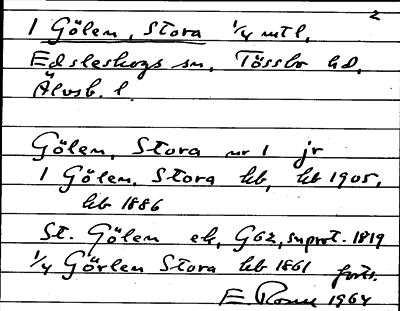 2
1 Gölen, Stora 1/4 mtl,
Edsleskogs sn, Tössbo hd,
Älvsb. l.
Gölen, Stora nr 1 jr
1 Gölen, Stora kb, kb 1905,
kb 1886
St. Gölen ek, G62, suprot. 1819
1/4 Görlen Stora kb 1861 forts.
E. Rosell 1964